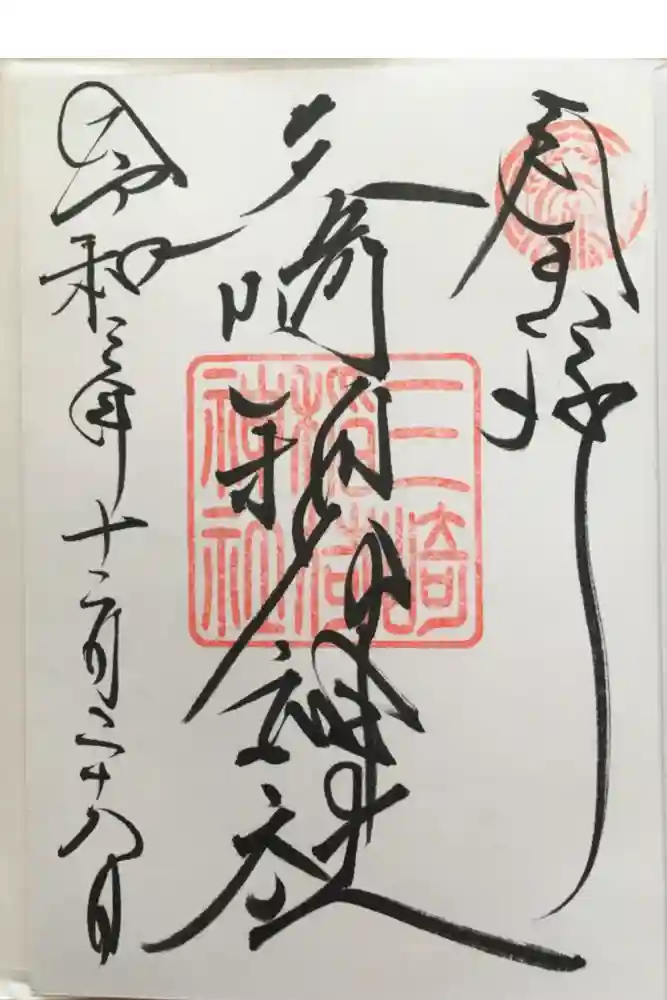 奉拝
三崎稲荷神社
三崎稲荷神社
令和三年十二月二十八日